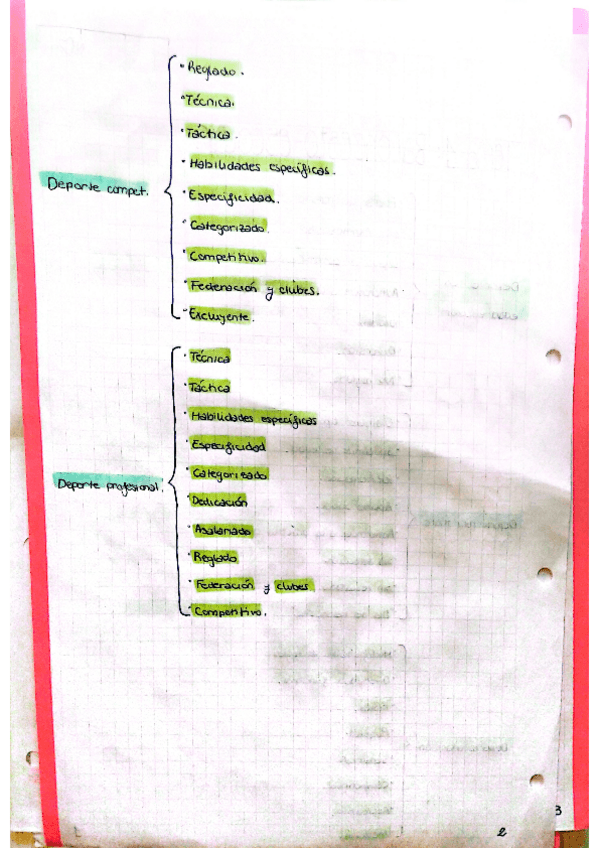 Deporte compet.
· Reglado.
· Técnica.
· Táctica.
· Habilidades específicas.
· Especificidad.
· Categorizado.
· Competitivo.
· Federación y clubes.
· Excluyente.
Deporte profesional.
· Técnica
· Táctica
· Habilidades específicas
· Especificidad
· Categorizado
· Dedicación
· Asalariado
· Reglado
· Federación y clubes
· Competitivo.
3
2